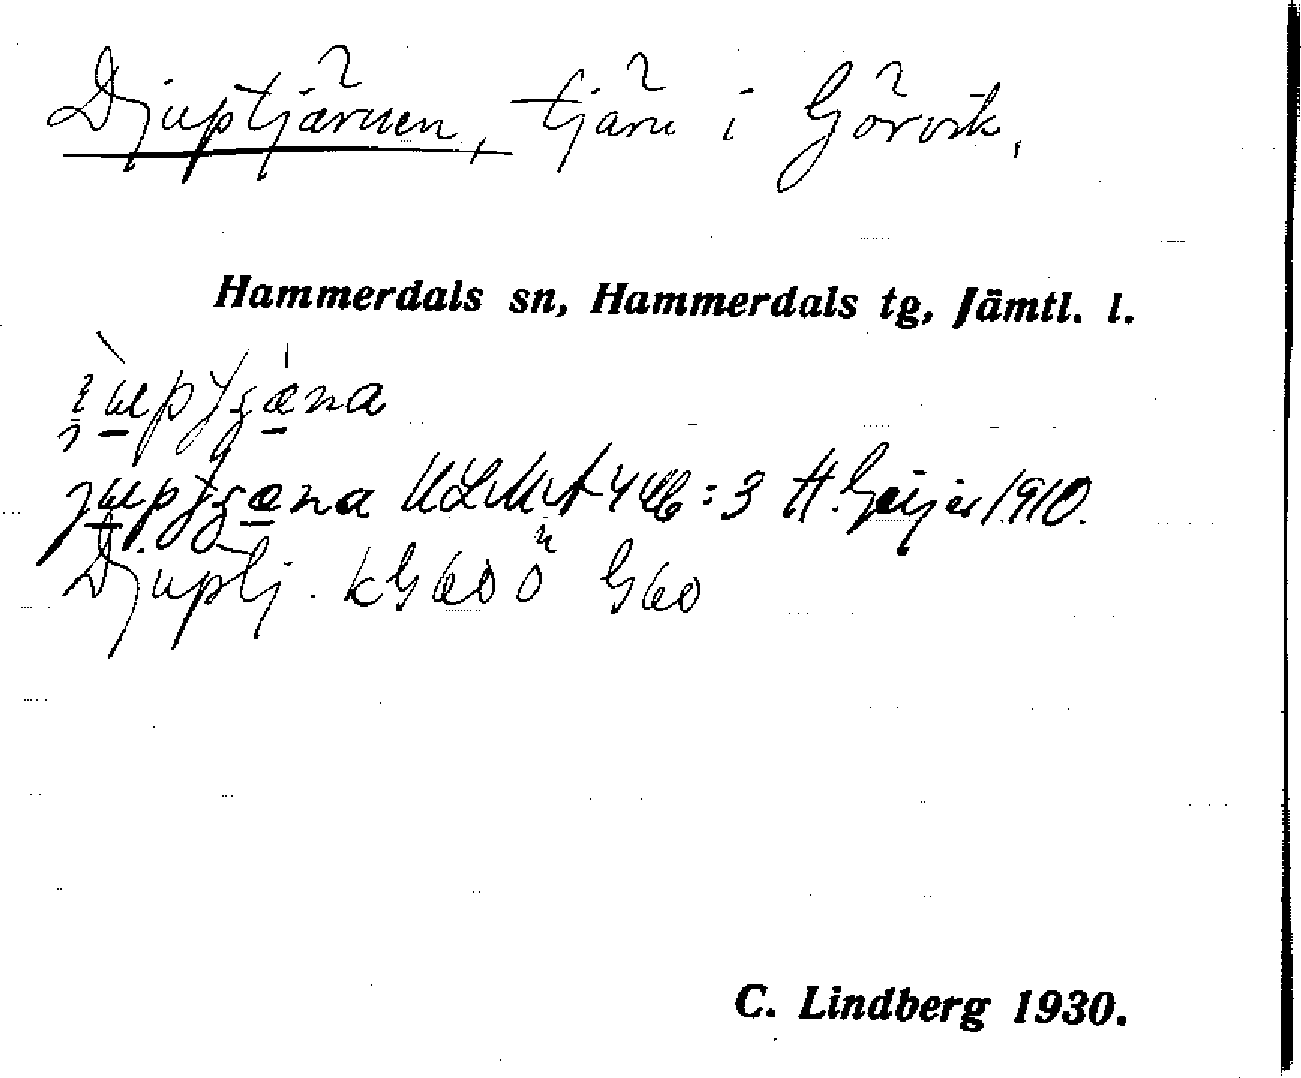 Djuptjärnen, tjärn i Görvik.
Hammerdals sn, Hammerdals tg, Jämtl. l.
ULMA 446:3 H. Geijer 1910.
Djuptj. kG60 ö G60
C. Lindberg 1930.